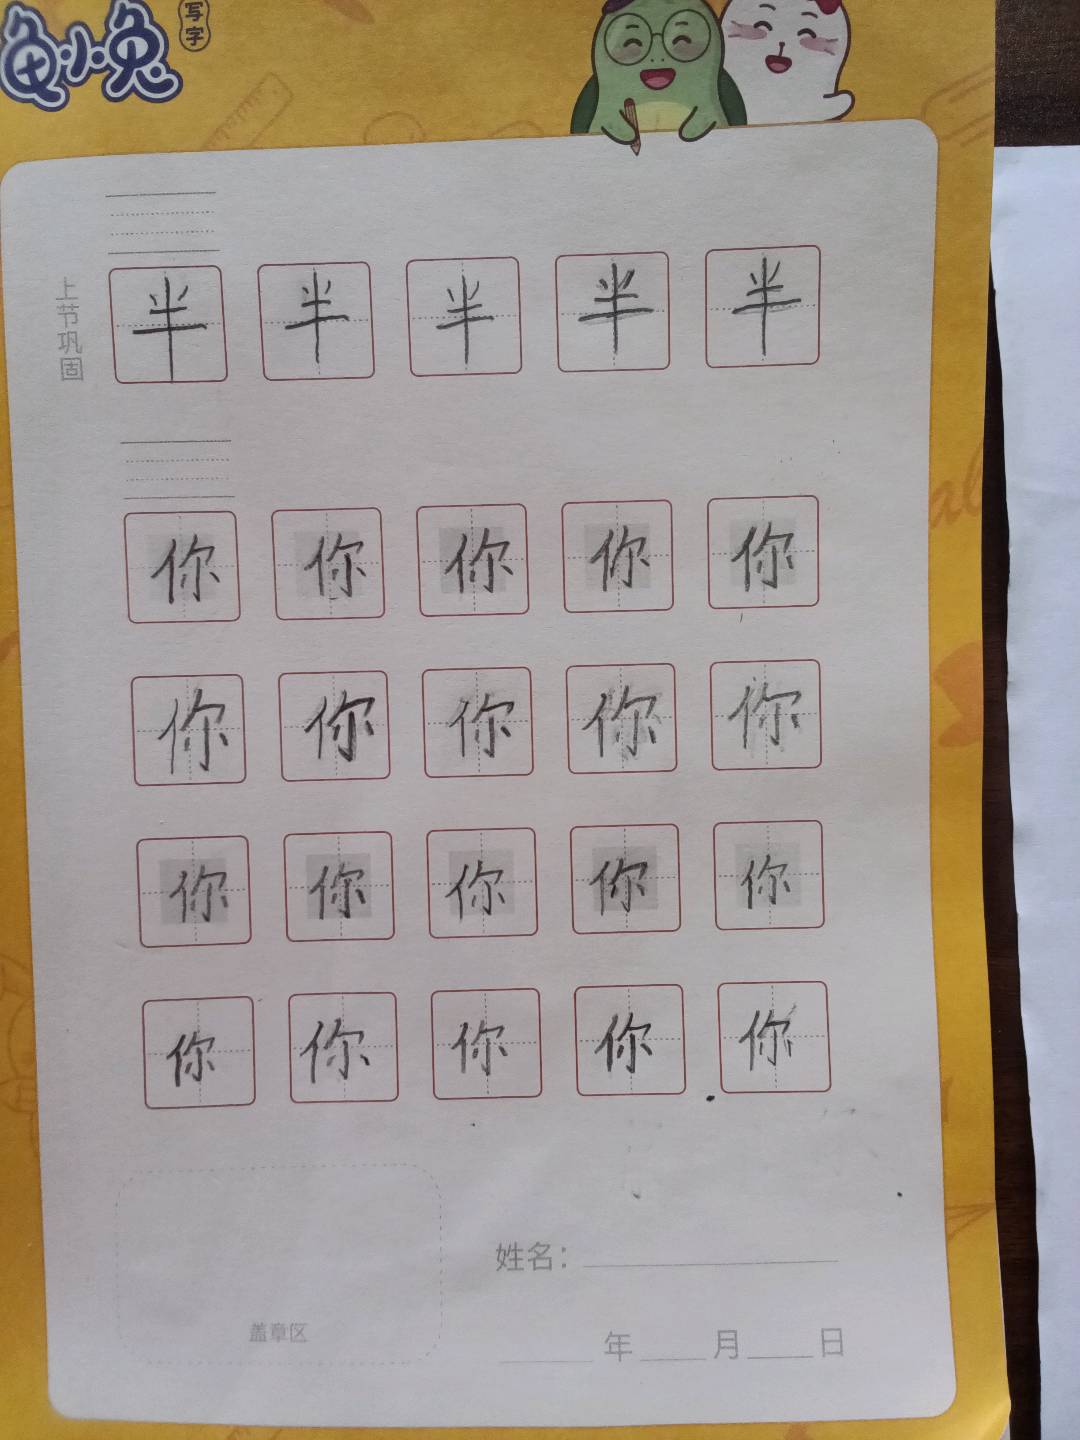 龟小兔
写字
上节巩固
半 半 半 半 半
你 你 你 你 你
你 你 你 你 你
你 你 你 你 你
你 你 你 你 你
姓名：
盖章区
年 月 日